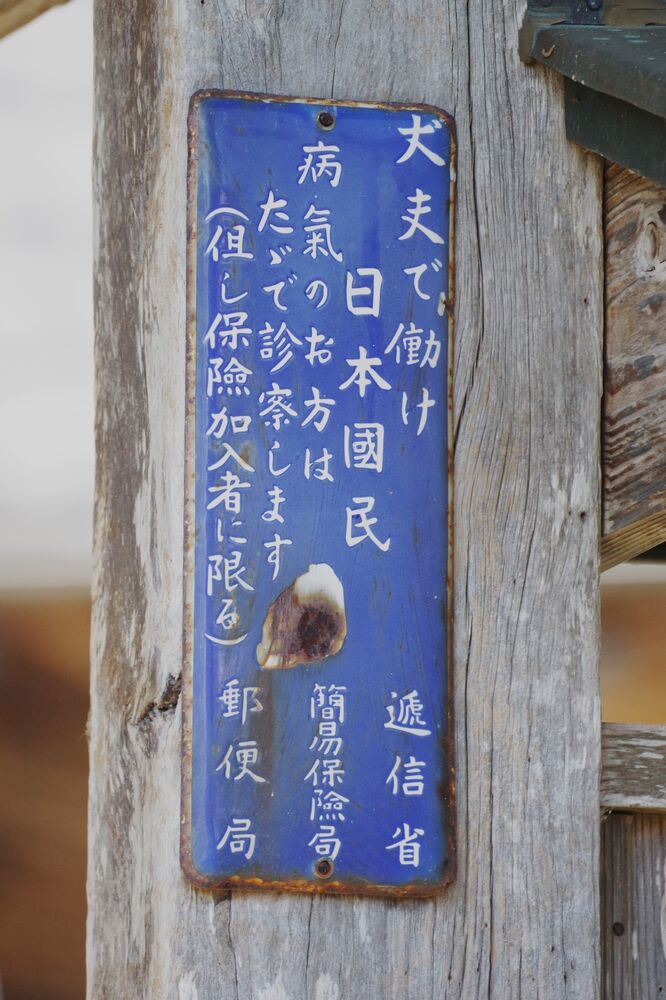 丈夫で働け
日本國民
病氣のお方は
たゞで診察します
(但し保險加入者に限る)
遞信省
簡易保險局
郵便局